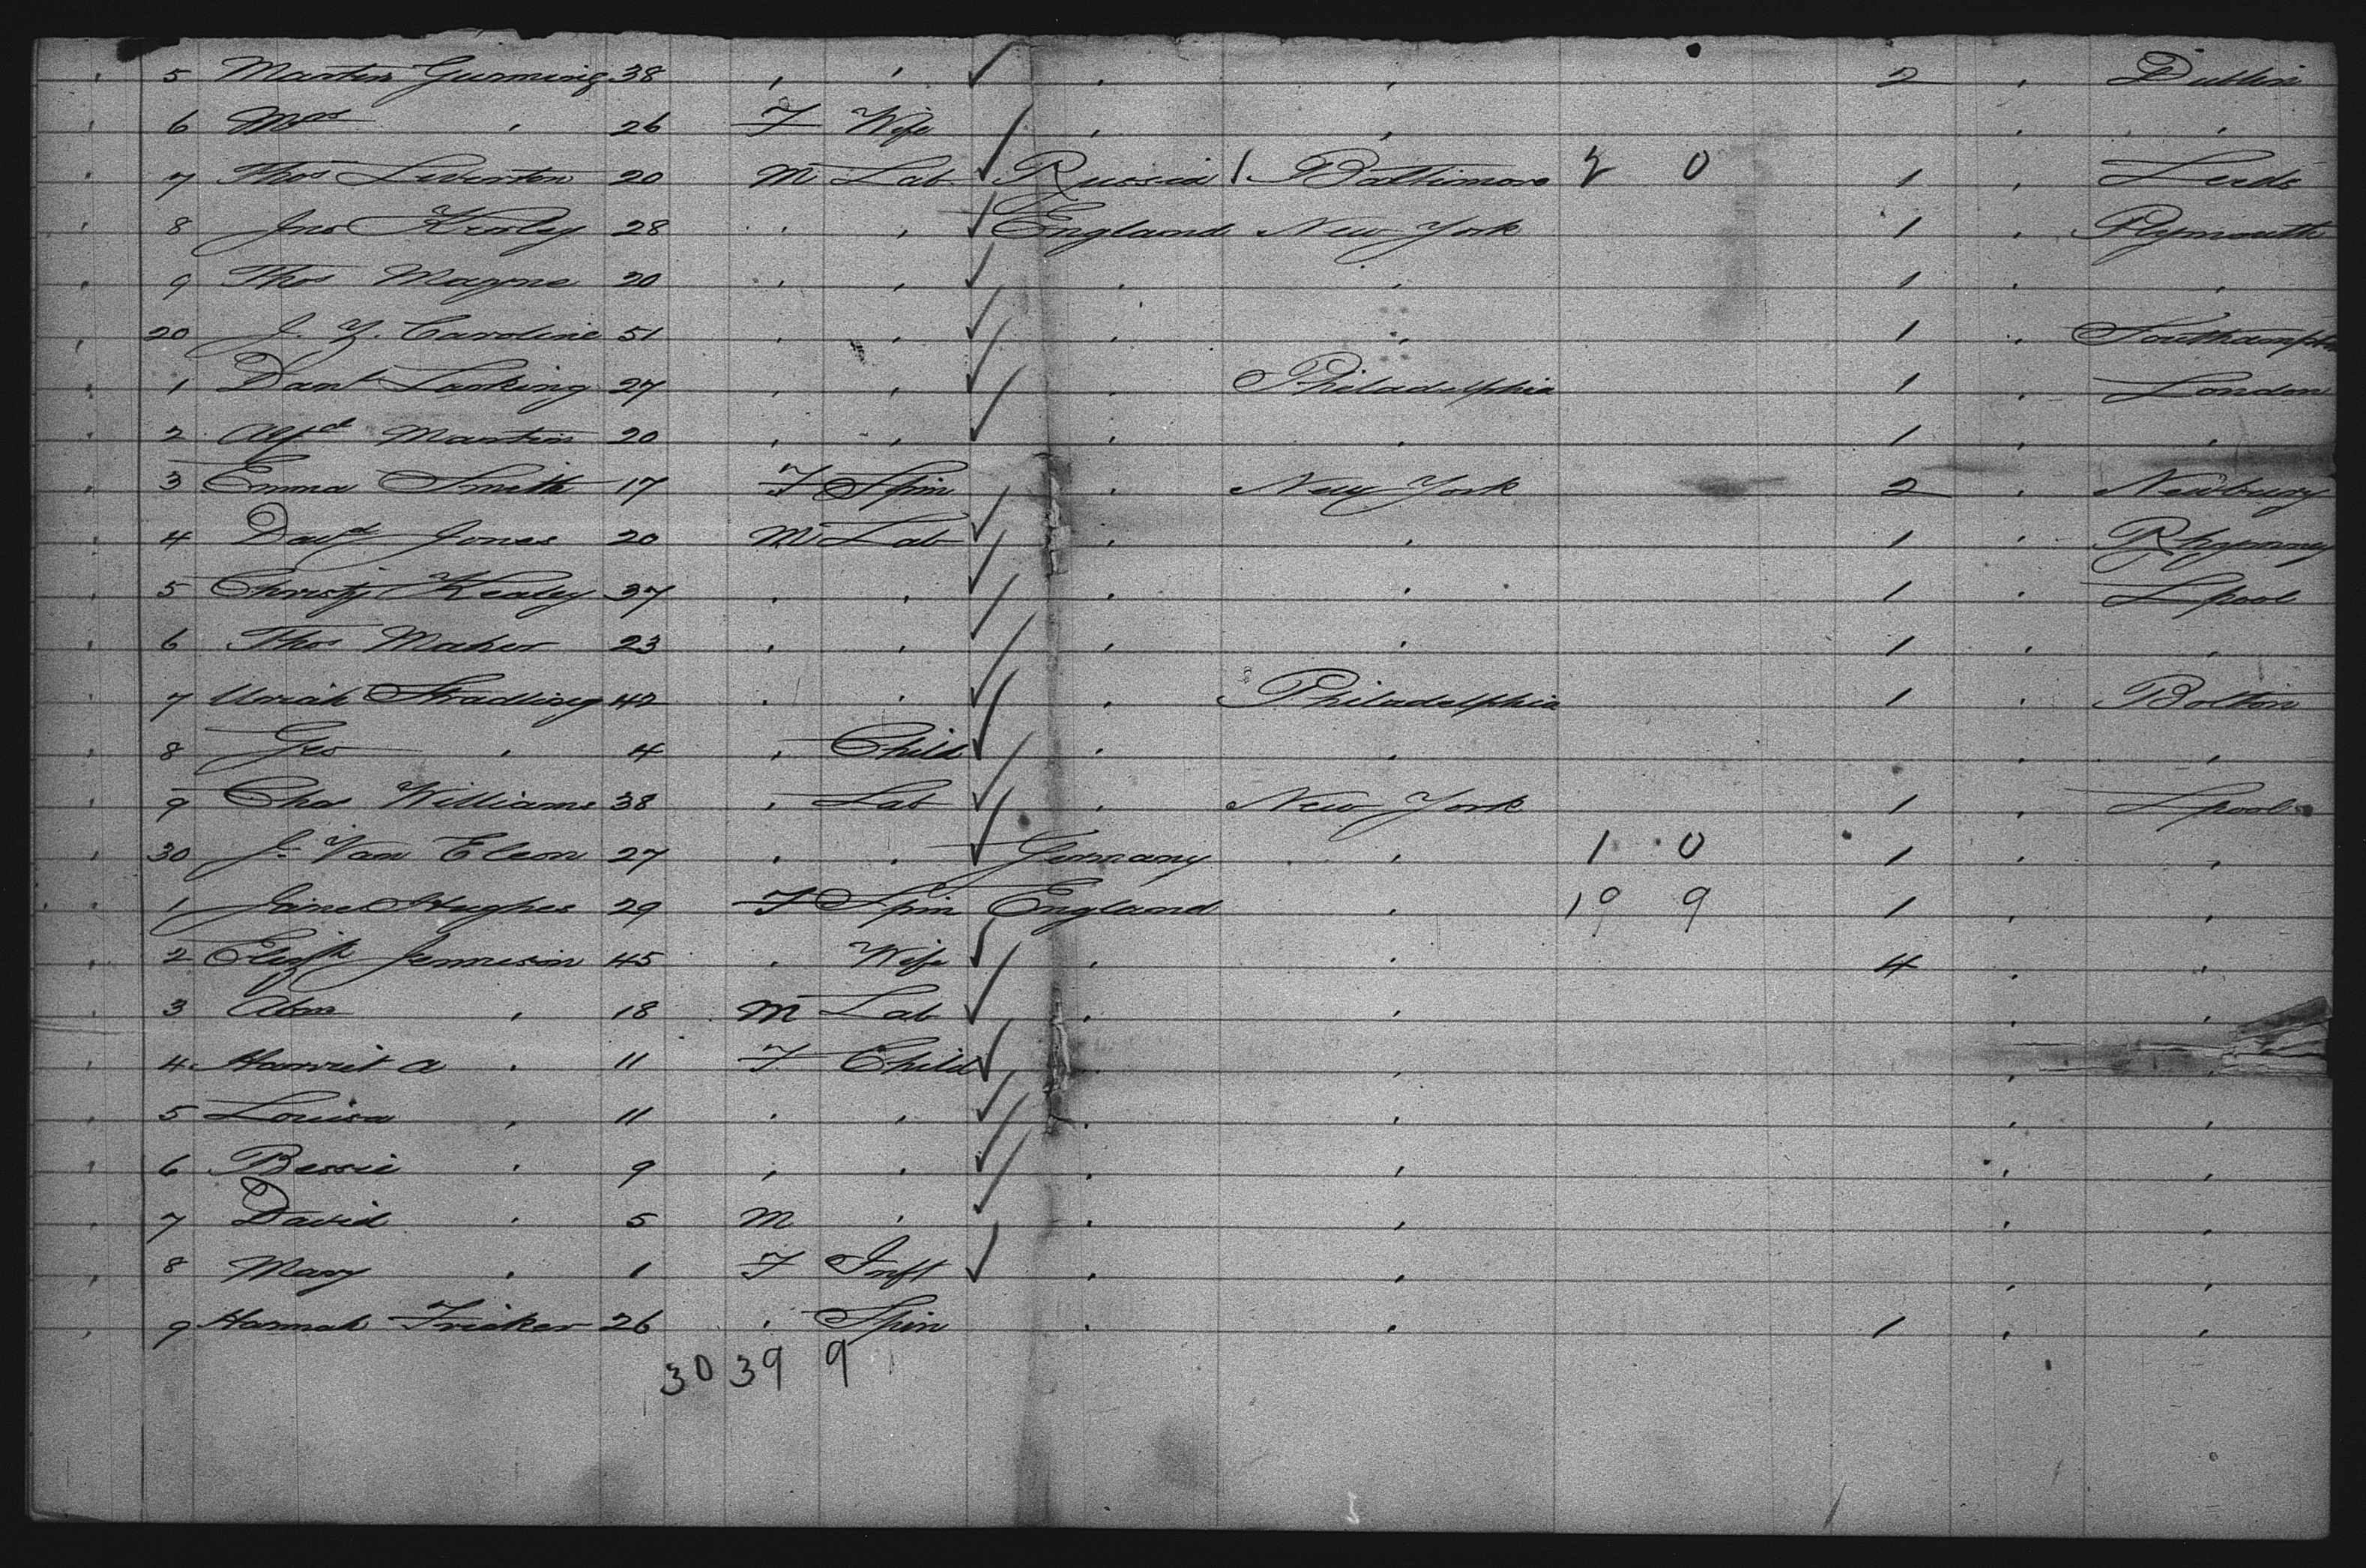 5 Martin Gunning 38 " " " " 2 " Dublin
6 Mrs " 26 F Wife " " " "
7 Thos Liverton 20 M Lab Russia 1 Baltimore 2 0 1 " Leeds
8 Jno 28 " " England New York 1 " Plymouth
9 Thos Mayne 20 " " " " 1 " "
20 J. Y. Caroline 51 " " " " 1 " Southampton
1 Danl Larking 27 " " " Philadelphia 1 " London
2 Alfd Martin 20 " " " " 1 " "
3 Emma Smith 17 F Spin " New York 2 " Newbury
4 Davd Jones 20 M Lab " " 1 " Rhymney
5 Christy Kealey 37 " " " " 1 " Lpool
6 Thos Maher 23 " " " " 1 " "
7 Uriah Stradling 42 " " " Philadelphia 1 " Bolton
8 Geo " 4 " Child " " " "
9 Chas Williams 38 " Lab " New York 1 " Lpool
30 J. Van Eleon 27 " " Germany " 1 0 1 " "
1 Jane Hughes 29 F Spin England " 19 9 1 " "
2 Elizth Jennison 45 " Wife " " 4 " "
3 Abm " 18 M Lab " " " "
4 Harriet A " 11 F Child " " " "
5 Louisa " 11 " " " " " "
6 Bessie " 9 " " " " " "
7 David " 5 M " " " " "
8 Mary " 1 F Inft " " " "
9 Hannah Fricker 26 " Spin " " 1 " "
30 39 9